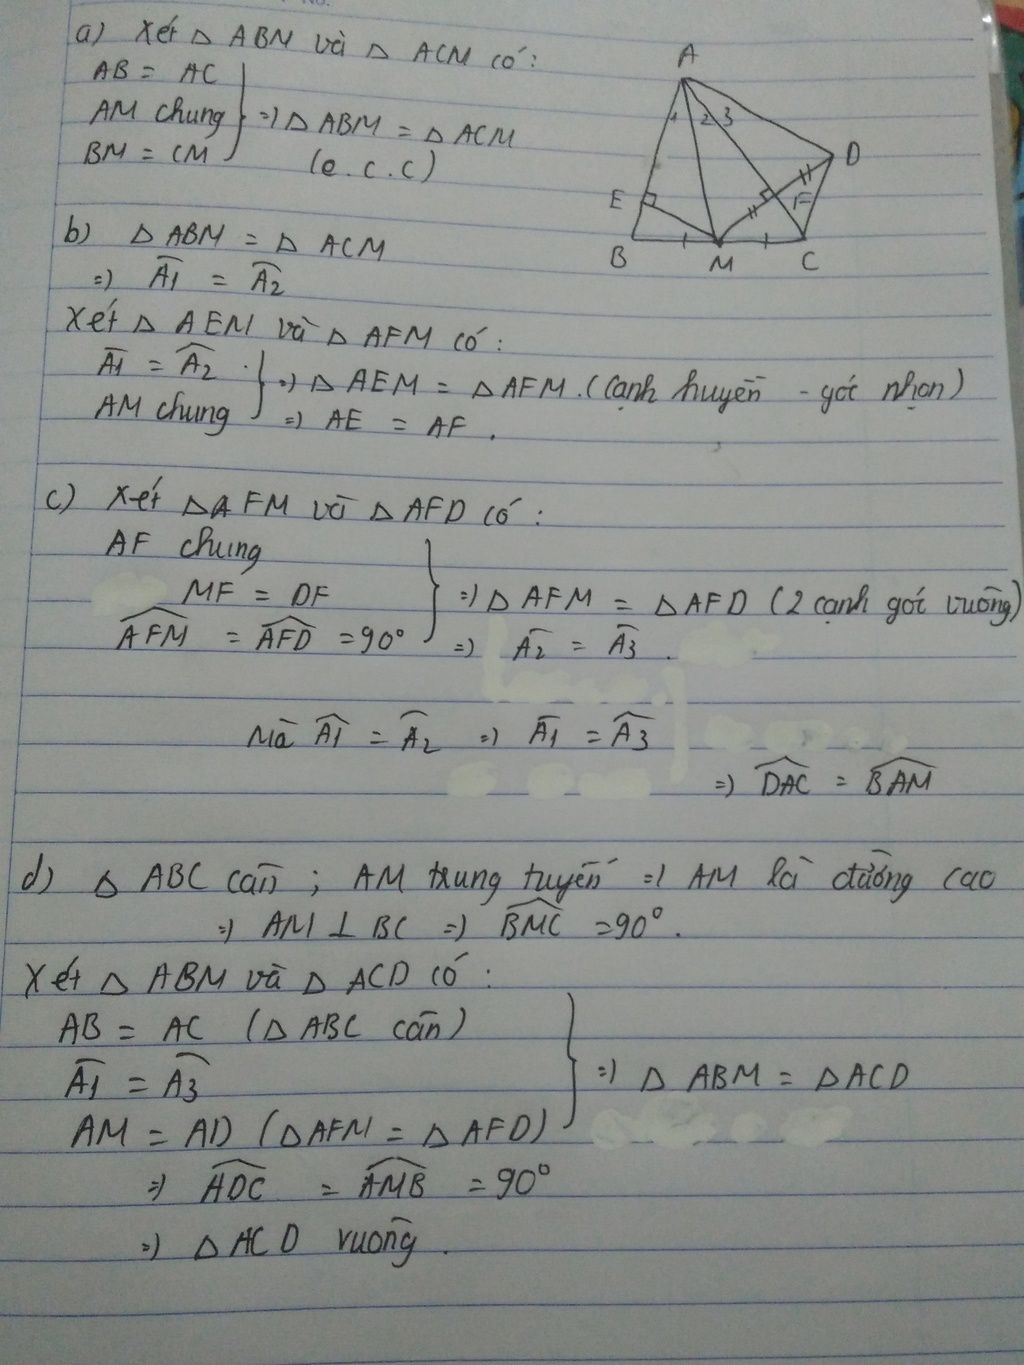 a) Xét △ ABM và △ ACM có:
AB = AC
AM chung
BM = CM
=> △ ABM = △ ACM
(c.c.c)
A
1 2 3
D
E
F
B
M
C
b) △ ABM = △ ACM
=> Â1 = Â2
Xét △ AEM và △ AFM có:
Â1 = Â2
AM chung
=> △ AEM = △ AFM. (cạnh huyền - góc nhọn)
=> AE = AF.
c) Xét △ AFM và △ AFD có:
AF chung
MF = DF
AFM = AFD = 90°
=> △ AFM = △ AFD (2 cạnh góc vuông)
=> Â2 = Â3.
Mà Â1 = Â2 => Â1 = Â3
=> DAC = BAM
d) △ ABC cân; AM trung tuyến => AM là đường cao
=> AM ⊥ BC => BMC = 90°.
Xét △ ABM và △ ACD có:
AB = AC (△ ABC cân)
Â1 = Â3
AM = AD (△ AFM = △ AFD)
=> △ ABM = △ ACD
=> ADC = AMB = 90°
=> △ ACD vuông.